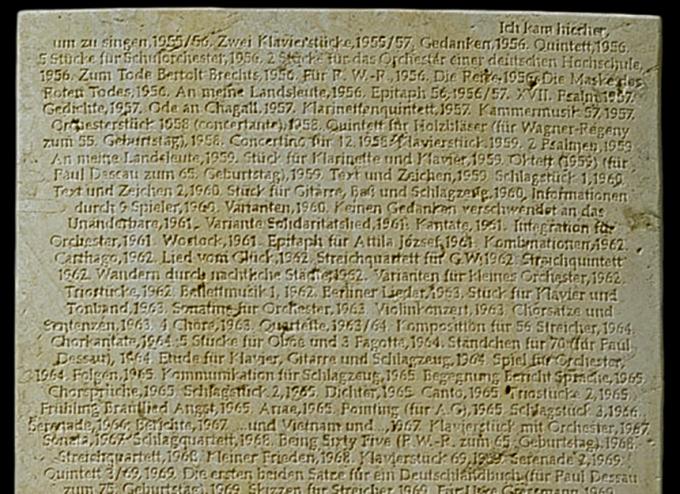 Ich kam hierher,
um zu singen, 1955/56. Zwei Klavierstücke, 1955/57. Gedanken, 1956. Quintett, 1956.
5 Stücke für Schulorchester, 1956. 2 Stücke für das Orchester einer deutschen Hochschule,
1956. Zum Tode Bertolt Brechts, 1956. Für R. W.-R., 1956. Die Reihe, 1956. Die Maske des
Roten Todes, 1956. An meine Landsleute, 1956. Epitaph 56, 1956/57. XVII. Psalm, 1957.
Gedichte, 1957. Ode an Chagall, 1957. Klarinettenquintett, 1957. Kammermusik 57, 1957.
Orchesterstück 1958 (concertante), 1958. Quintett für Holzbläser (für Wagner-Régeny
zum 55. Geburtstag), 1958. Concertino für 12, 1958. Klavierstück 1959. 2 Psalmen, 1959.
An meine Landsleute, 1959. Stück für Klarinette und Klavier, 1959. Oktett (1959) (für
Paul Dessau zum 65. Geburtstag), 1959. Text und Zeichen, 1959. Schlagstück 1, 1960.
Text und Zeichen 2, 1960. Stück für Gitarre, Baß und Schlagzeug, 1960. Informationen
durch 9 Spieler, 1960. Varianten, 1960. Keinen Gedanken verschwendet an das
Unänderbare, 1961. Variante Solidaritätslied, 1961. Kantate, 1961. Integration für
Orchester, 1961. Wostock, 1961. Epitaph für Attila József, 1961. Kombinationen, 1962.
Carthago, 1962. Lied vom Glück, 1962. Streichquartett für G.W. 1962. Streichquintett
1962. Wandern durch nächtliche Städte, 1962. Varianten für kleines Orchester, 1962.
Triostücke, 1962. Ballettmusik 1, 1962. Berliner Lieder, 1963. Stück für Klavier und
Tonband, 1963. Sonatine für Orchester, 1963. Violinkonzert, 1963. Chorsätze und
Sentenzen, 1963. 4 Chöre, 1963. Quartette, 1963/64. Komposition für 56 Streicher, 1964.
Chorkantate, 1964. 5 Stücke für Oboe und 3 Fagotte, 1964. Ständchen für 70 (für Paul
Dessau), 1964. Etude für Klavier, Gitarre und Schlagzeug, 1964. Spiel für Orchester,
1964. Folgen, 1965. Kommunikation für Schlagzeug, 1965. Begegnung Bericht Sprache, 1965.
Chorsprüche, 1965. Schlagstück 2, 1965. Dichter, 1965. Canto, 1965. Triostücke 2, 1965.
Frühling Brautlied Angst, 1965. Ariae, 1965. Pointing (für A.G), 1965. Schlagstück 3, 1966.
Serenade, 1966. Berichte, 1967. ...und Vietnam und..., 1967. Klavierstück mit Orchester, 1967.
Sonata, 1967. Schlagquartett, 1968. Being Sixty Five (P. W.-R. zum 65. Geburtstag), 1968.
Streichquartett, 1968. Kleiner Frieden, 1968. Klavierstück 69, 1969. Serenade 2, 1969.
Quintett 3/69, 1969. Die ersten beiden Sätze für ein Deutschlandbuch (für Paul Dessau
zum 75. Geburtstag), 1969. Skizzen für Streicher, 1969.